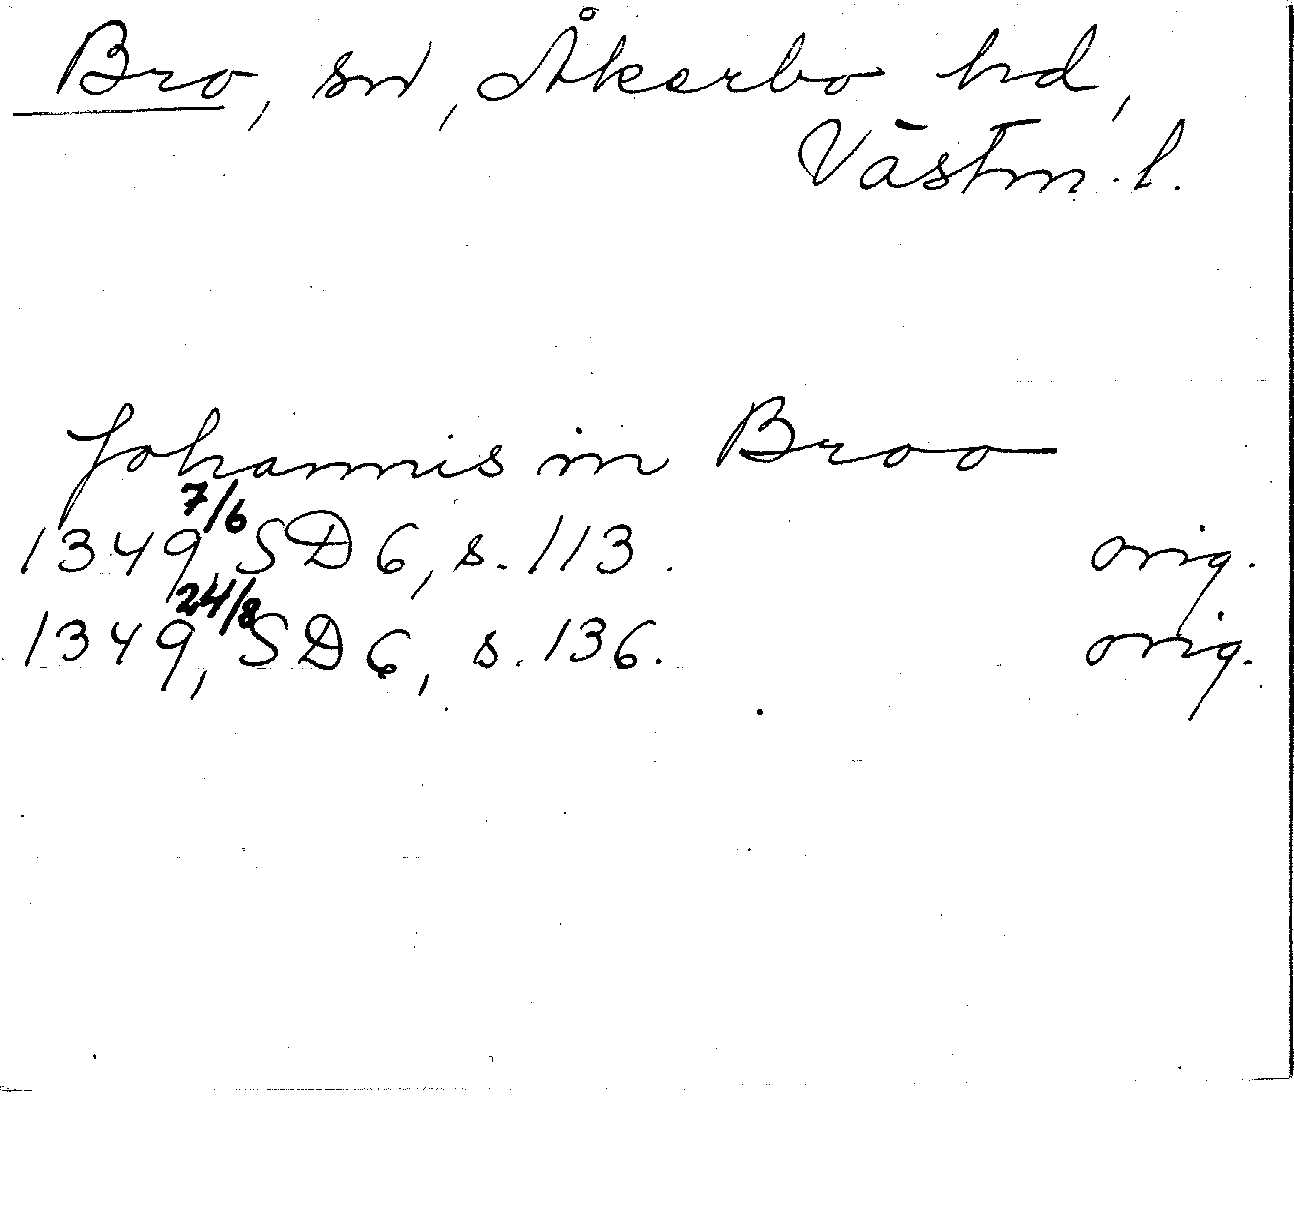 Bro, sn, Åkerbo hd,
Västm. l.
Johannis in Broo
1349 7/6, SD 6, s. 113. orig.
1349 24/8, SD 6, s. 136. orig.